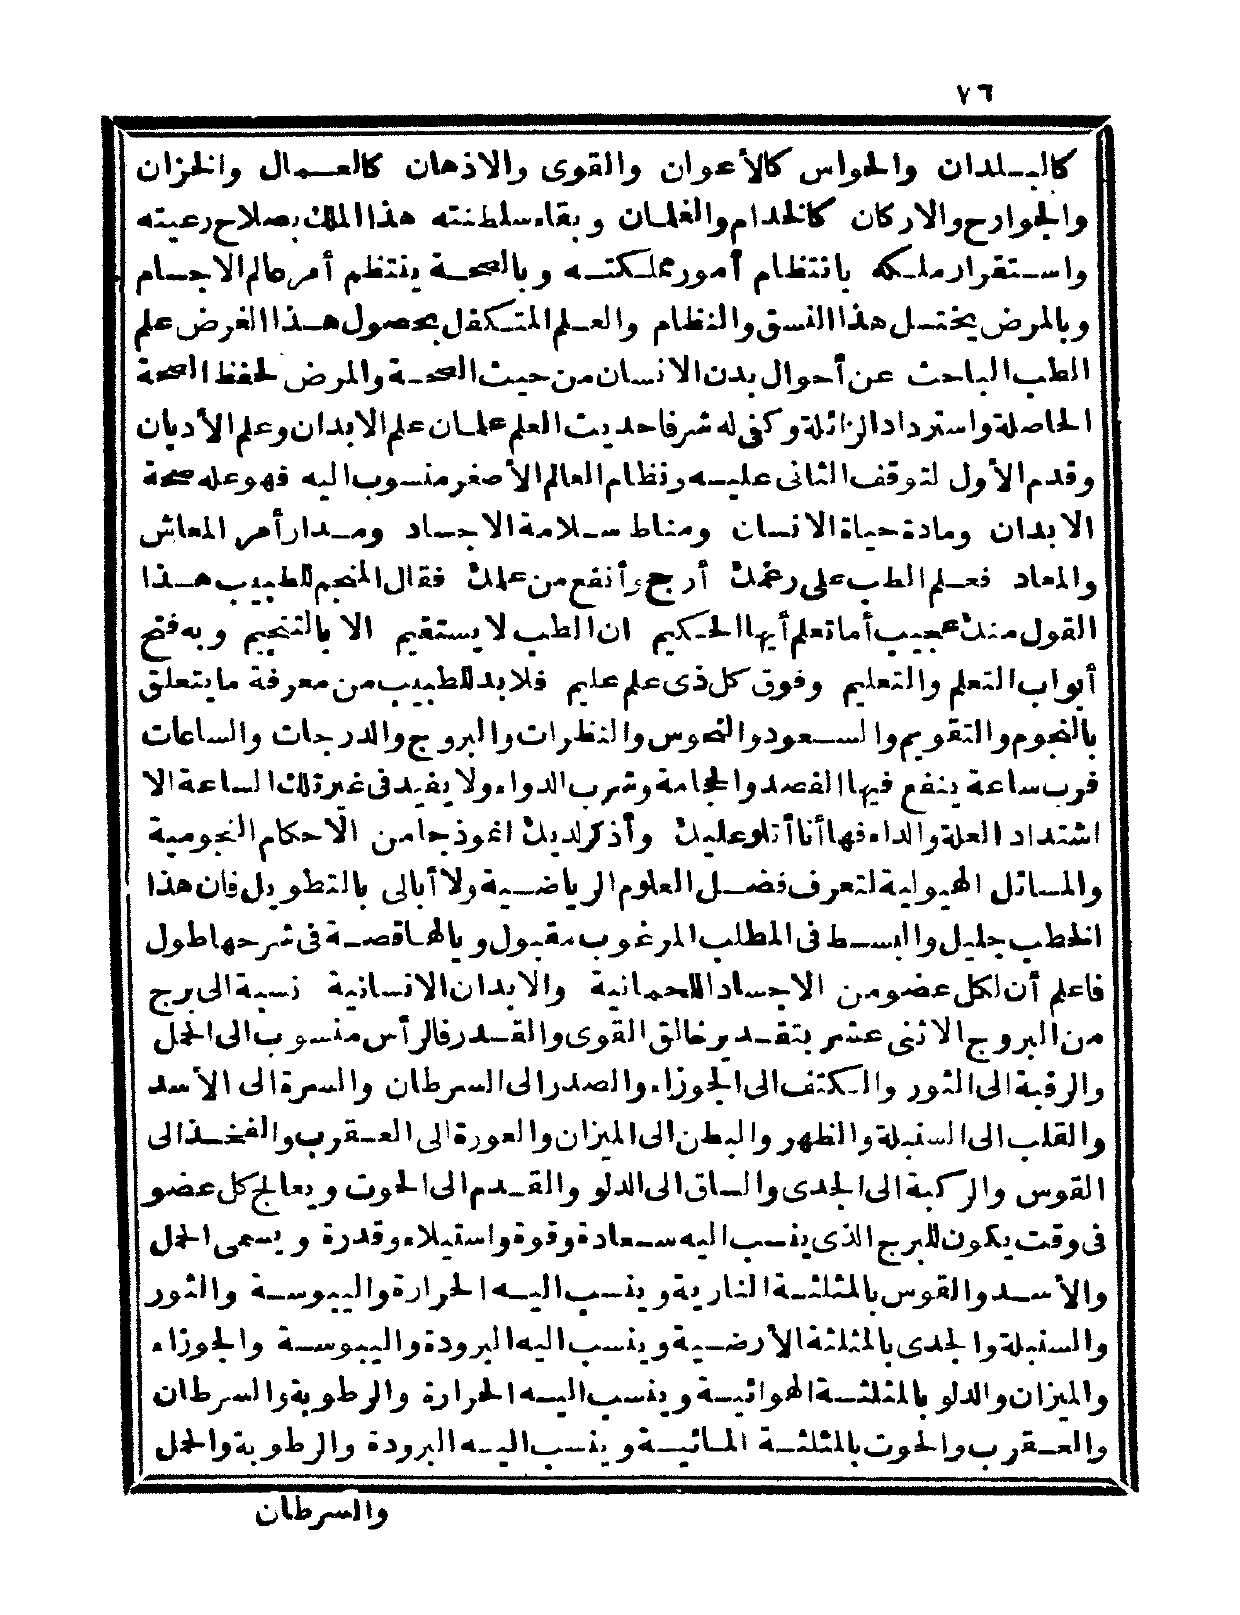 ٧٦
كالبلدان والحواس كالأعوان والقوى والاذهان كالعمال والخزان
والجوارح والاركان كالخدام والغلمان وبقاء سلطنته هذا الملك بصلاح رعيته
واستقرار ملكه بانتظام أمور مملكته وبالصحة ينتظم أمر عالم الاجسام
وبالمرض يختل هذا النسق والنظام والعلم المتكفل بحصول هذا الغرض علم
الطب الباحث عن أحوال بدن الانسان من حيث الصحة والمرض لحفظ الصحة
الحاصلة واسترداد الزائلة وكفى له شرفا حديث العلم علمان علم الابدان وعلم الأديان
وقدم الأول لتوقف الثانى عليه ونظام العالم الأصغر منسوب اليه فهو علة صحة
الابدان ومادة حياة الانسان ومناط سلامة الاجساد ومدار أمر المعاش
والمعاد فعلم الطب على رغمك أرجح وأنفع من علمك فقال المنجم للطبيب هذا
القول منك عجيب أما تعلم أيها الحكيم ان الطب لا يستقيم الا بالتنجيم وبه فتح
أبواب التعلم والتعليم وفوق كل ذى علم عليم فلا بد للطبيب من معرفة ما يتعلق
بالنجوم والتقويم والسعود والنحوس والنظرات والبروج والدرجات والساعات
فرب ساعة ينفع فيها الفصد والحجامة وشرب الدواء ولا يفيد فى غير تلك الساعة الا
اشتداد العلة والداء فها أنا أتلو عليك وأذكر لديك انموذجا من الاحكام النجومية
والمسائل الهيولية لتعرف فضل العلوم الرياضية ولا أبالى بالتطويل فان هذا
الخطب جليل والبسط فى المطلب المرغوب مقبول ويالها قصة فى شرحها طول
فاعلم أن لكل عضو من الاجساد اللحمانية والابدان الانسانية نسبة الى برج
من البروج الاثنى عشر بتقدير خالق القوى والقدر فالرأس منسوب الى الحمل
والرقبة الى الثور والكتف الى الجوزاء والصدر الى السرطان والسرة الى الأسد
والقلب الى السنبلة والظهر والبطن الى الميزان والعورة الى العقرب والفخذ الى
القوس والركبة الى الجدى والساق الى الدلو والقدم الى الحوت ويعالج كل عضو
فى وقت يكون للبرج الذى ينسب اليه سعادة وقوة واستيلاء وقدرة ويسمى الحمل
والأسد والقوس بالمثلثة النارية وينسب اليه الحرارة واليبوسة والثور
والسنبلة والجدى بالمثلثة الأرضية وينسب اليه البرودة واليبوسة والجوزاء
والميزان والدلو بالمثلثة الهوائية وينسب اليه الحرارة والرطوبة والسرطان
والعقرب والحوت بالمثلثة المائية وينسب اليه البرودة والرطوبة والحمل
والسرطان